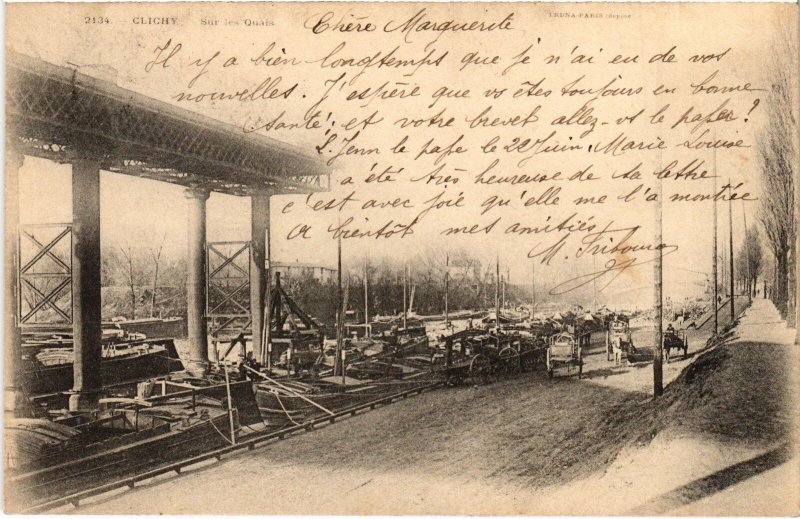 2134. CLICHY Sur les Quais
TRDNA-PARIS (déposé
Chère Marguerite
Il y a bien longtemps que je n'ai eu de vos
nouvelles. J'espère que vs êtes toujours en bonne
santé; et votre brevet allez-vs le passer?
Jenn le passe le 22 juin. Marie Louise
a été très heureuse de sa lettre
c'est avec joie qu'elle me l'a montrée
A bientôt mes amitiés
M. Fribourg